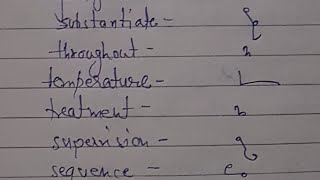 substantiate -
throughout -
temperature -
treatment -
supervision -
sequence -